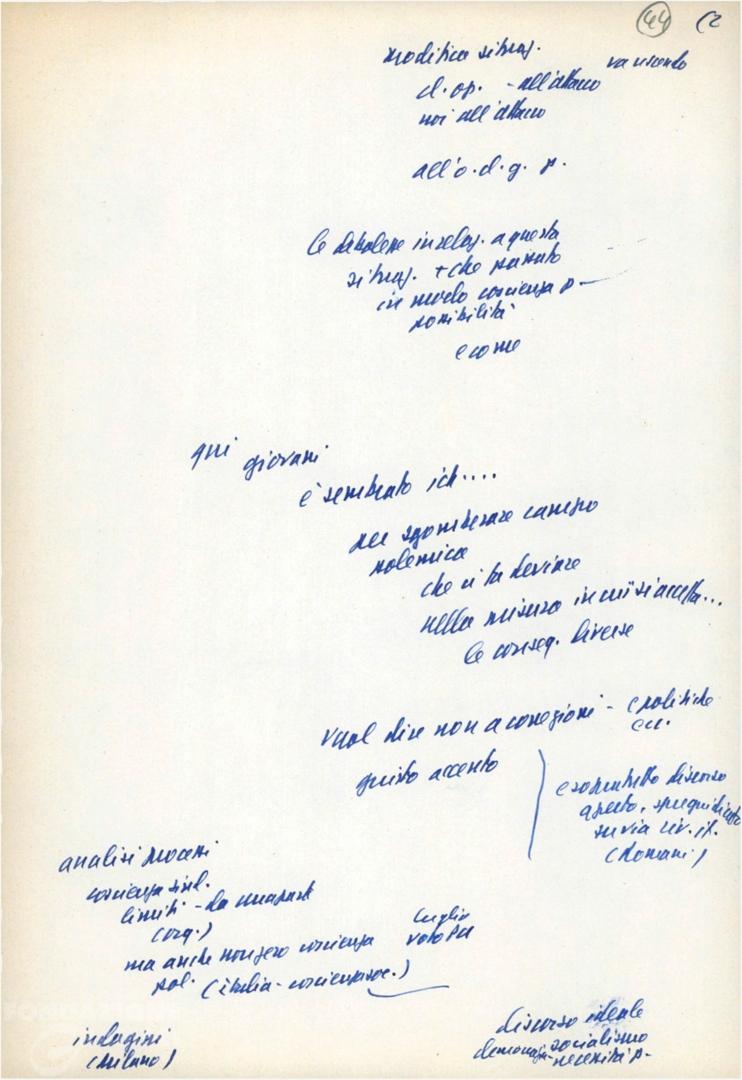 44 (2
modifica situaz.
cl. op. - all'attacco va usando
noi all'attacco
all'o.d.g. p.
le debolezze in relaz. a questa
situaz. + che passato
in modo coscienza p -
possibilità
e come
qui giovani
è sembrato ich....
per sgomberare campo
polemica
che ci fa deviare
nella misura in cui si accetta...
le conseg. diverse
vuol dire non a correzioni - (politiche
ecc.
giusto accento
e soprattutto discorso
aperto, spregiudicato
su via riv. it.
(domani)
analisi processi
coscienza sind.
limiti - da una parte
(org.)
ma anche non zero coscienza
pol. (italia - coscienza soc.)
luglio
voto PCI
indagini
(Milano)
discorso ideale
socialismo
necessità p-